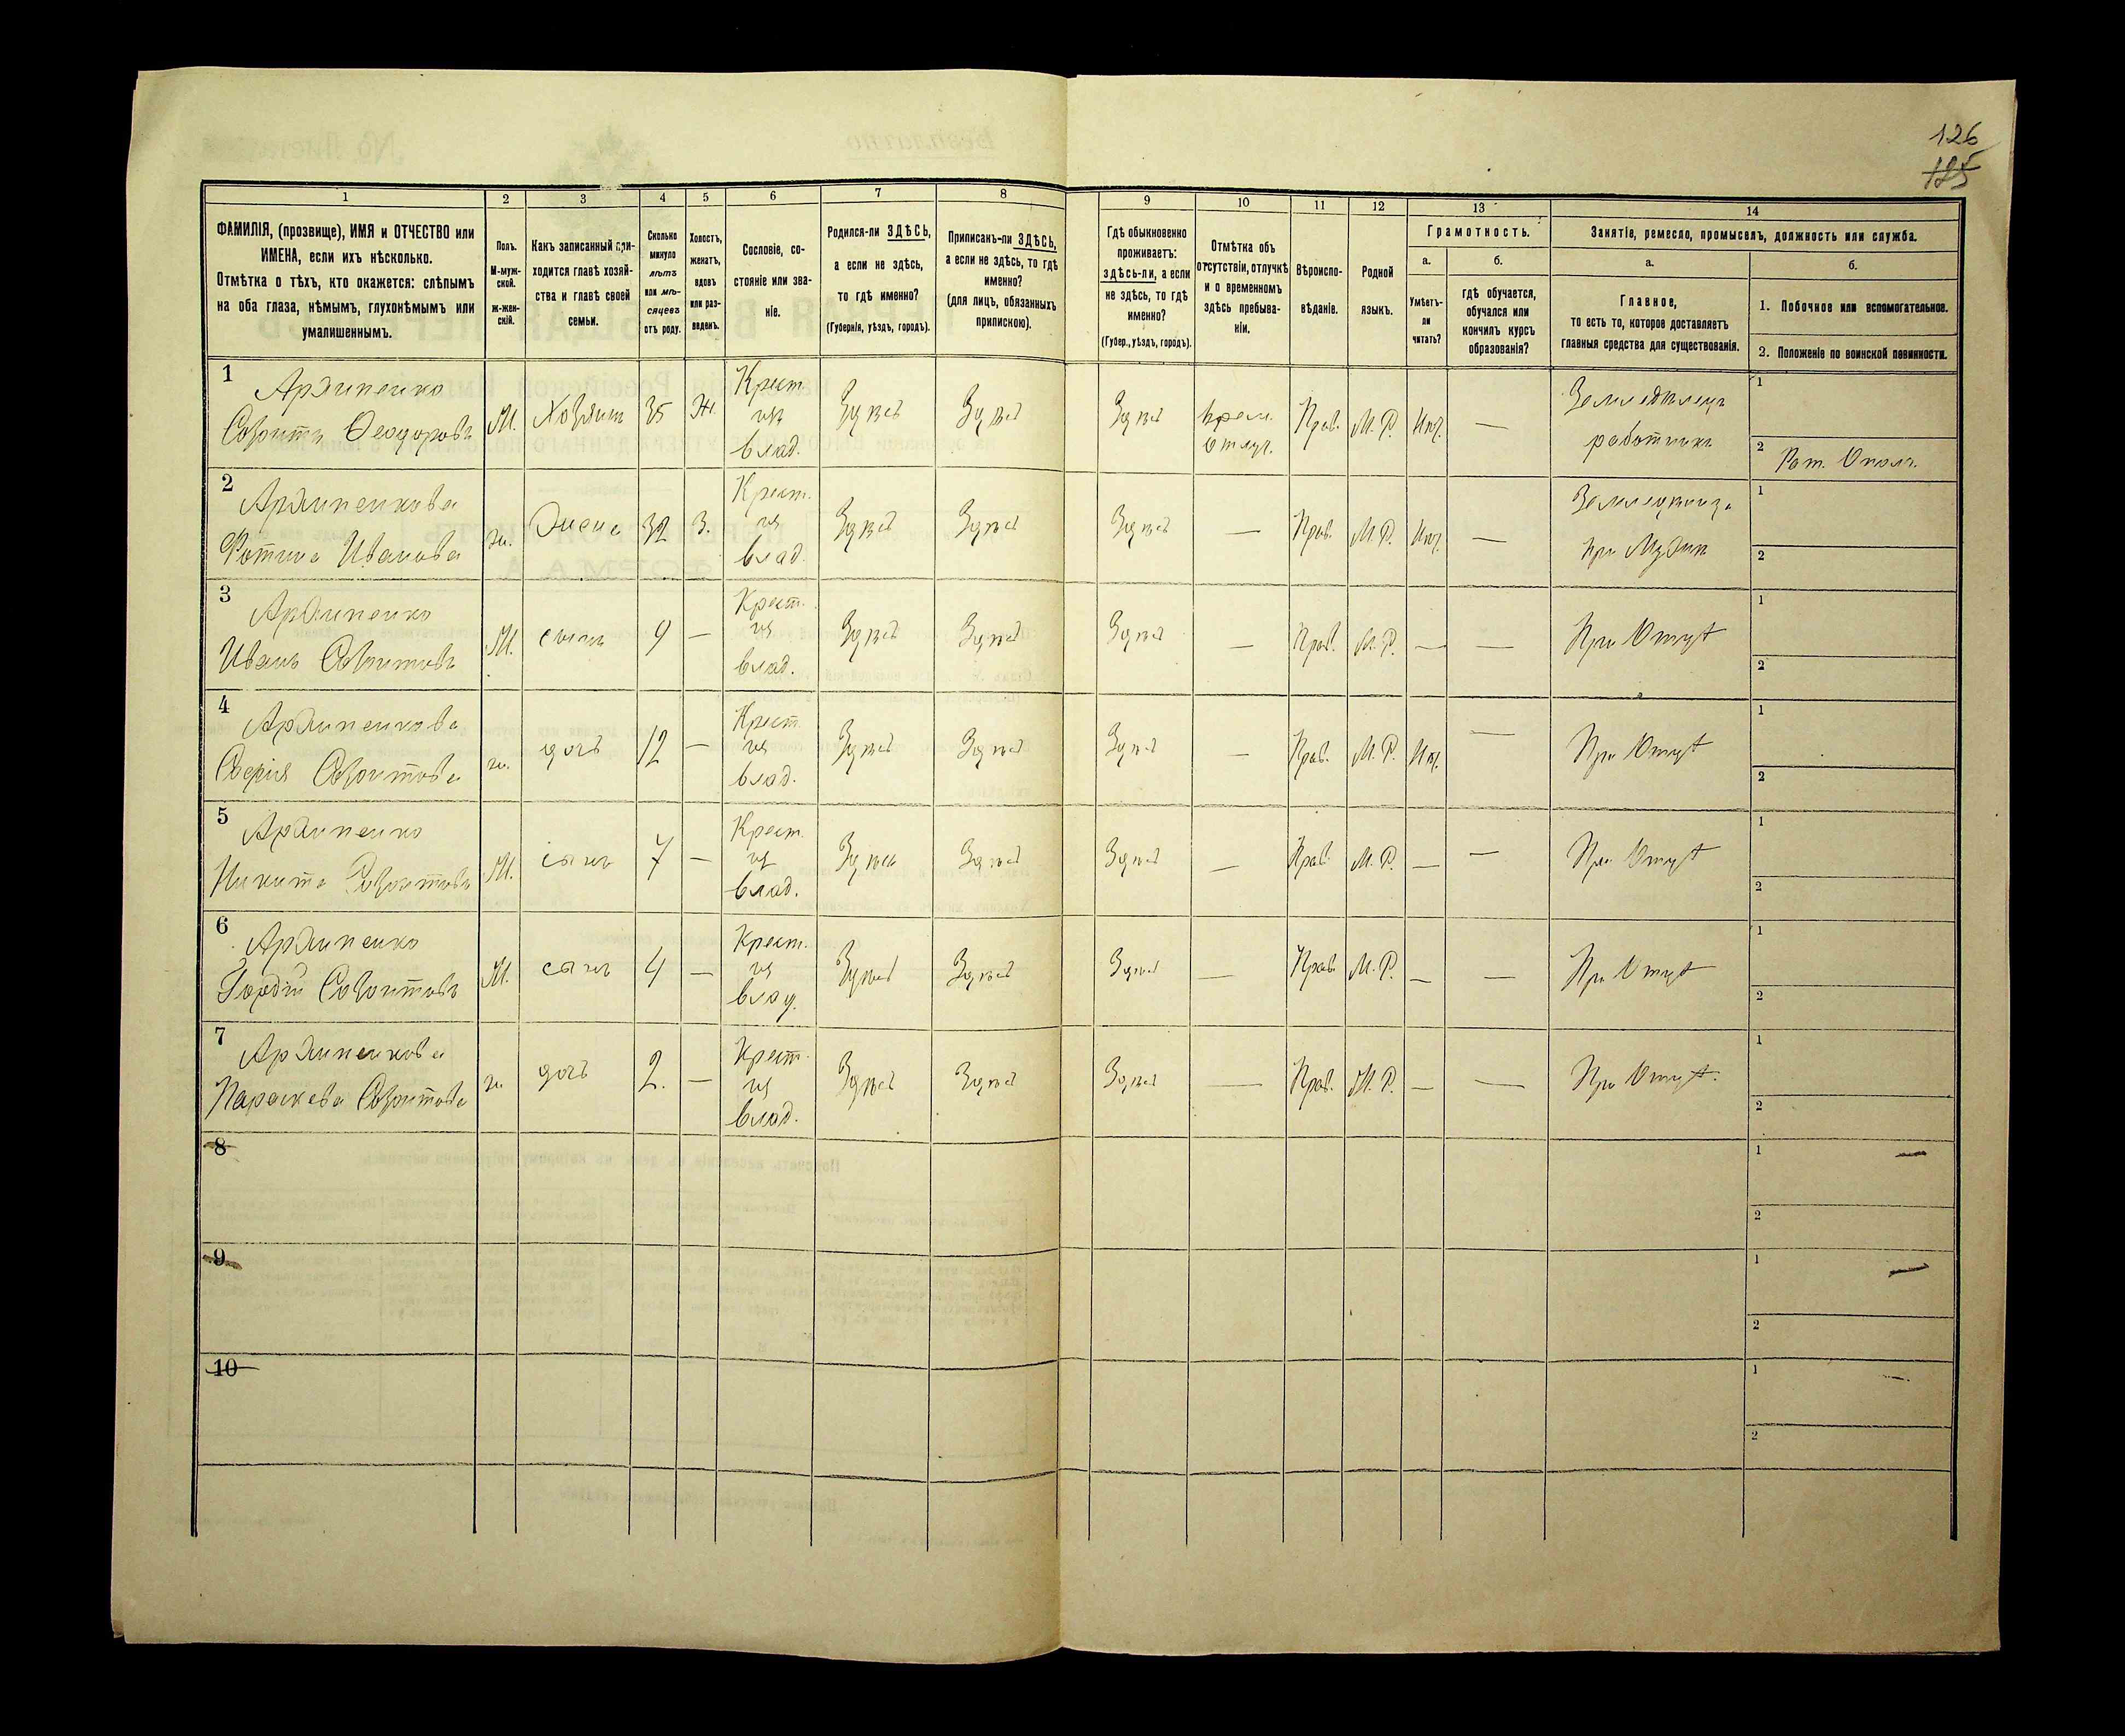 126
125
1
2
3
4
5
6
7
8
9
10
11
12
13
14
ФАМИЛІЯ, (прозвище), ИМЯ и ОТЧЕСТВО или
ИМЕНА, если ихъ нѣсколько.
Отмѣтка о тѣхъ, кто окажется: слѣпымъ
на оба глаза, нѣмымъ, глухонѣмымъ или
умалишеннымъ.
Полъ.
М-муж-
ской.
ж-жен-
скій.
Какъ записанный при-
ходится главѣ хозяй-
ства и главѣ своей
семьи.
Сколько
минуло
лѣтъ
или мѣ-
сяцевъ
отъ роду.
Холостъ,
женатъ,
вдовъ
или раз-
веденъ.
Сословіе, со-
стояніе или зва-
ніе.
Родился-ли ЗДѢСЬ,
а если не здѣсь,
то гдѣ именно?
(Губернія, уѣздъ, городъ).
Приписанъ-ли ЗДѢСЬ,
а если не здѣсь, то гдѣ
именно?
(для лицъ, обязанныхъ
припискою).
Гдѣ обыкновенно
проживаетъ:
здѣсь-ли, а если
не здѣсь, то гдѣ
именно?
(Губер., уѣздъ, городъ).
Отмѣтка объ
отсутствіи, отлучкѣ
и о временномъ
здѣсь пребыва-
ніи.
Вѣроиспо-
вѣданіе.
Родной
языкъ.
Грамотность.
а.
Умѣетъ-
ли
читать?
б.
гдѣ обучается,
обучался или
кончилъ курсъ
образованія?
Занятіе, ремесло, промыселъ, должность или служба.
а.
Главное,
то есть то, которое доставляетъ
главныя средства для существованія.
б.
1. Побочное или вспомогательное.
2. Положеніе по воинской повинности.
1
Архипенко
Созонтъ Ѳеодоровъ
М.
Хозяинъ
35
Ж.
Крест.
изъ
влад.
Здѣсь
Здѣсь
Здѣсь
Врем.
отлуч.
Прав.
М. Р.
Нѣт.
—
Земледѣлецъ
работникъ
1
2 Рат. Ополч.
2
Архипенкова
Фотина Иванова
ж.
Жена
32
З.
Крест.
из
влад.
Здѣсь
Здѣсь
Здѣсь
—
Прав.
М. Р.
Нѣт.
—
при Мужѣ
1
2
3
Архипенко
Иванъ Созонтовъ
М.
сынъ
9
—
Крест.
из
влад.
Здѣсь
Здѣсь
Здѣсь
—
Прав.
М. Р.
—
—
При Отцѣ
1
2
4
Архипенкова
Созонтова
ж.
дочь
12
—
Крест.
из
влад.
Здѣсь
Здѣсь
Здѣсь
—
Прав.
М. Р.
Нѣт.
—
При Отцѣ
1
2
5
Архипенко
Никита Созонтовъ
М.
сынъ
7
—
Крест.
из
влад.
Здѣсь
Здѣсь
Здѣсь
—
Прав.
М. Р.
—
—
При Отцѣ
1
2
6
Архипенко
Гордій Созонтовъ
М.
сынъ
4
—
Крест.
из
влад.
Здѣсь
Здѣсь
Здѣсь
—
Прав.
М. Р.
—
—
При Отцѣ
1
2
7
Архипенкова
Параскева Созонтова
ж.
дочь
2.
—
Крест.
из
влад.
Здѣсь
Здѣсь
Здѣсь
—
Прав.
М. Р.
—
—
При Отцѣ.
1
2
8
1
2
9
1
2
10
1
2